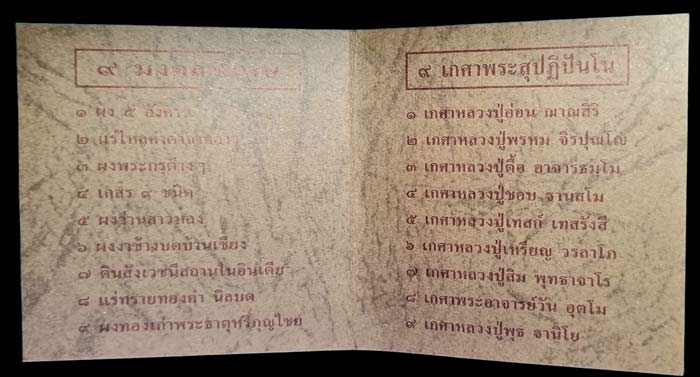 ๙ มงคล
๑ ผง ๕ อังคาร
๒ แร่ไหล
๓ ผงพระกรุต่างๆ
๔ เกสร ๙ ชนิด
๕ ผงว่านสาวหลง
๖ ผงงาช้างบดบ้านเชียง
๗ ดินสังเวชนียสถานในอินเดีย
๘ แร่ทรายทองคำ นิลบด
๙ ผงทองเก่าพระธาตุหริภุญไชย
๙ เกศาพระสุปฏิปันโน
๑ เกศาหลวงปู่อ่อน ญาณสิริ
๒ เกศาหลวงปู่พรหม จิรปุญโญ
๓ เกศาหลวงปู่ตื้อ อาจารธมฺโม
๔ เกศาหลวงปู่ชอบ ฐานสโม
๕ เกศาหลวงปู่เทสก์ เทสรังสี
๖ เกศาหลวงปู่เหรียญ วรลาโภ
๗ เกศาหลวงปู่สิม พุทธาจาโร
๘ เกศาพระอาจารย์วัน อุตโม
๙ เกศาหลวงปู่พุธ ฐานิโย